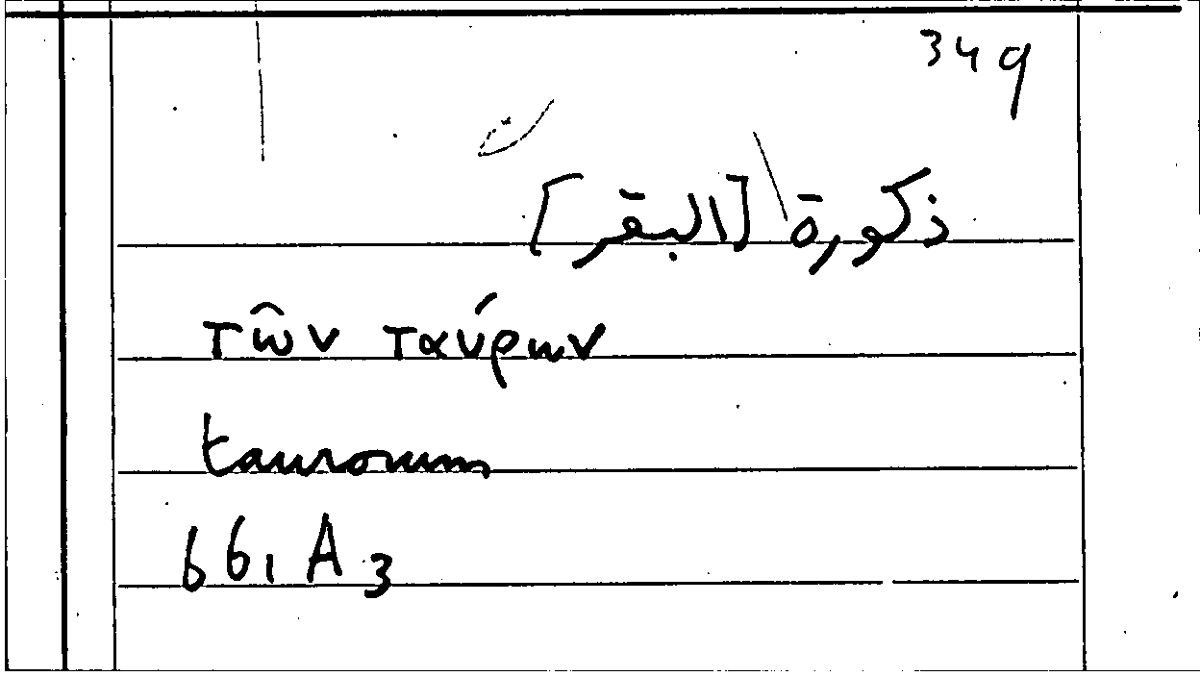 349
ذكورة [البقر]
τῶν ταύρων
taurorum
661 A 3